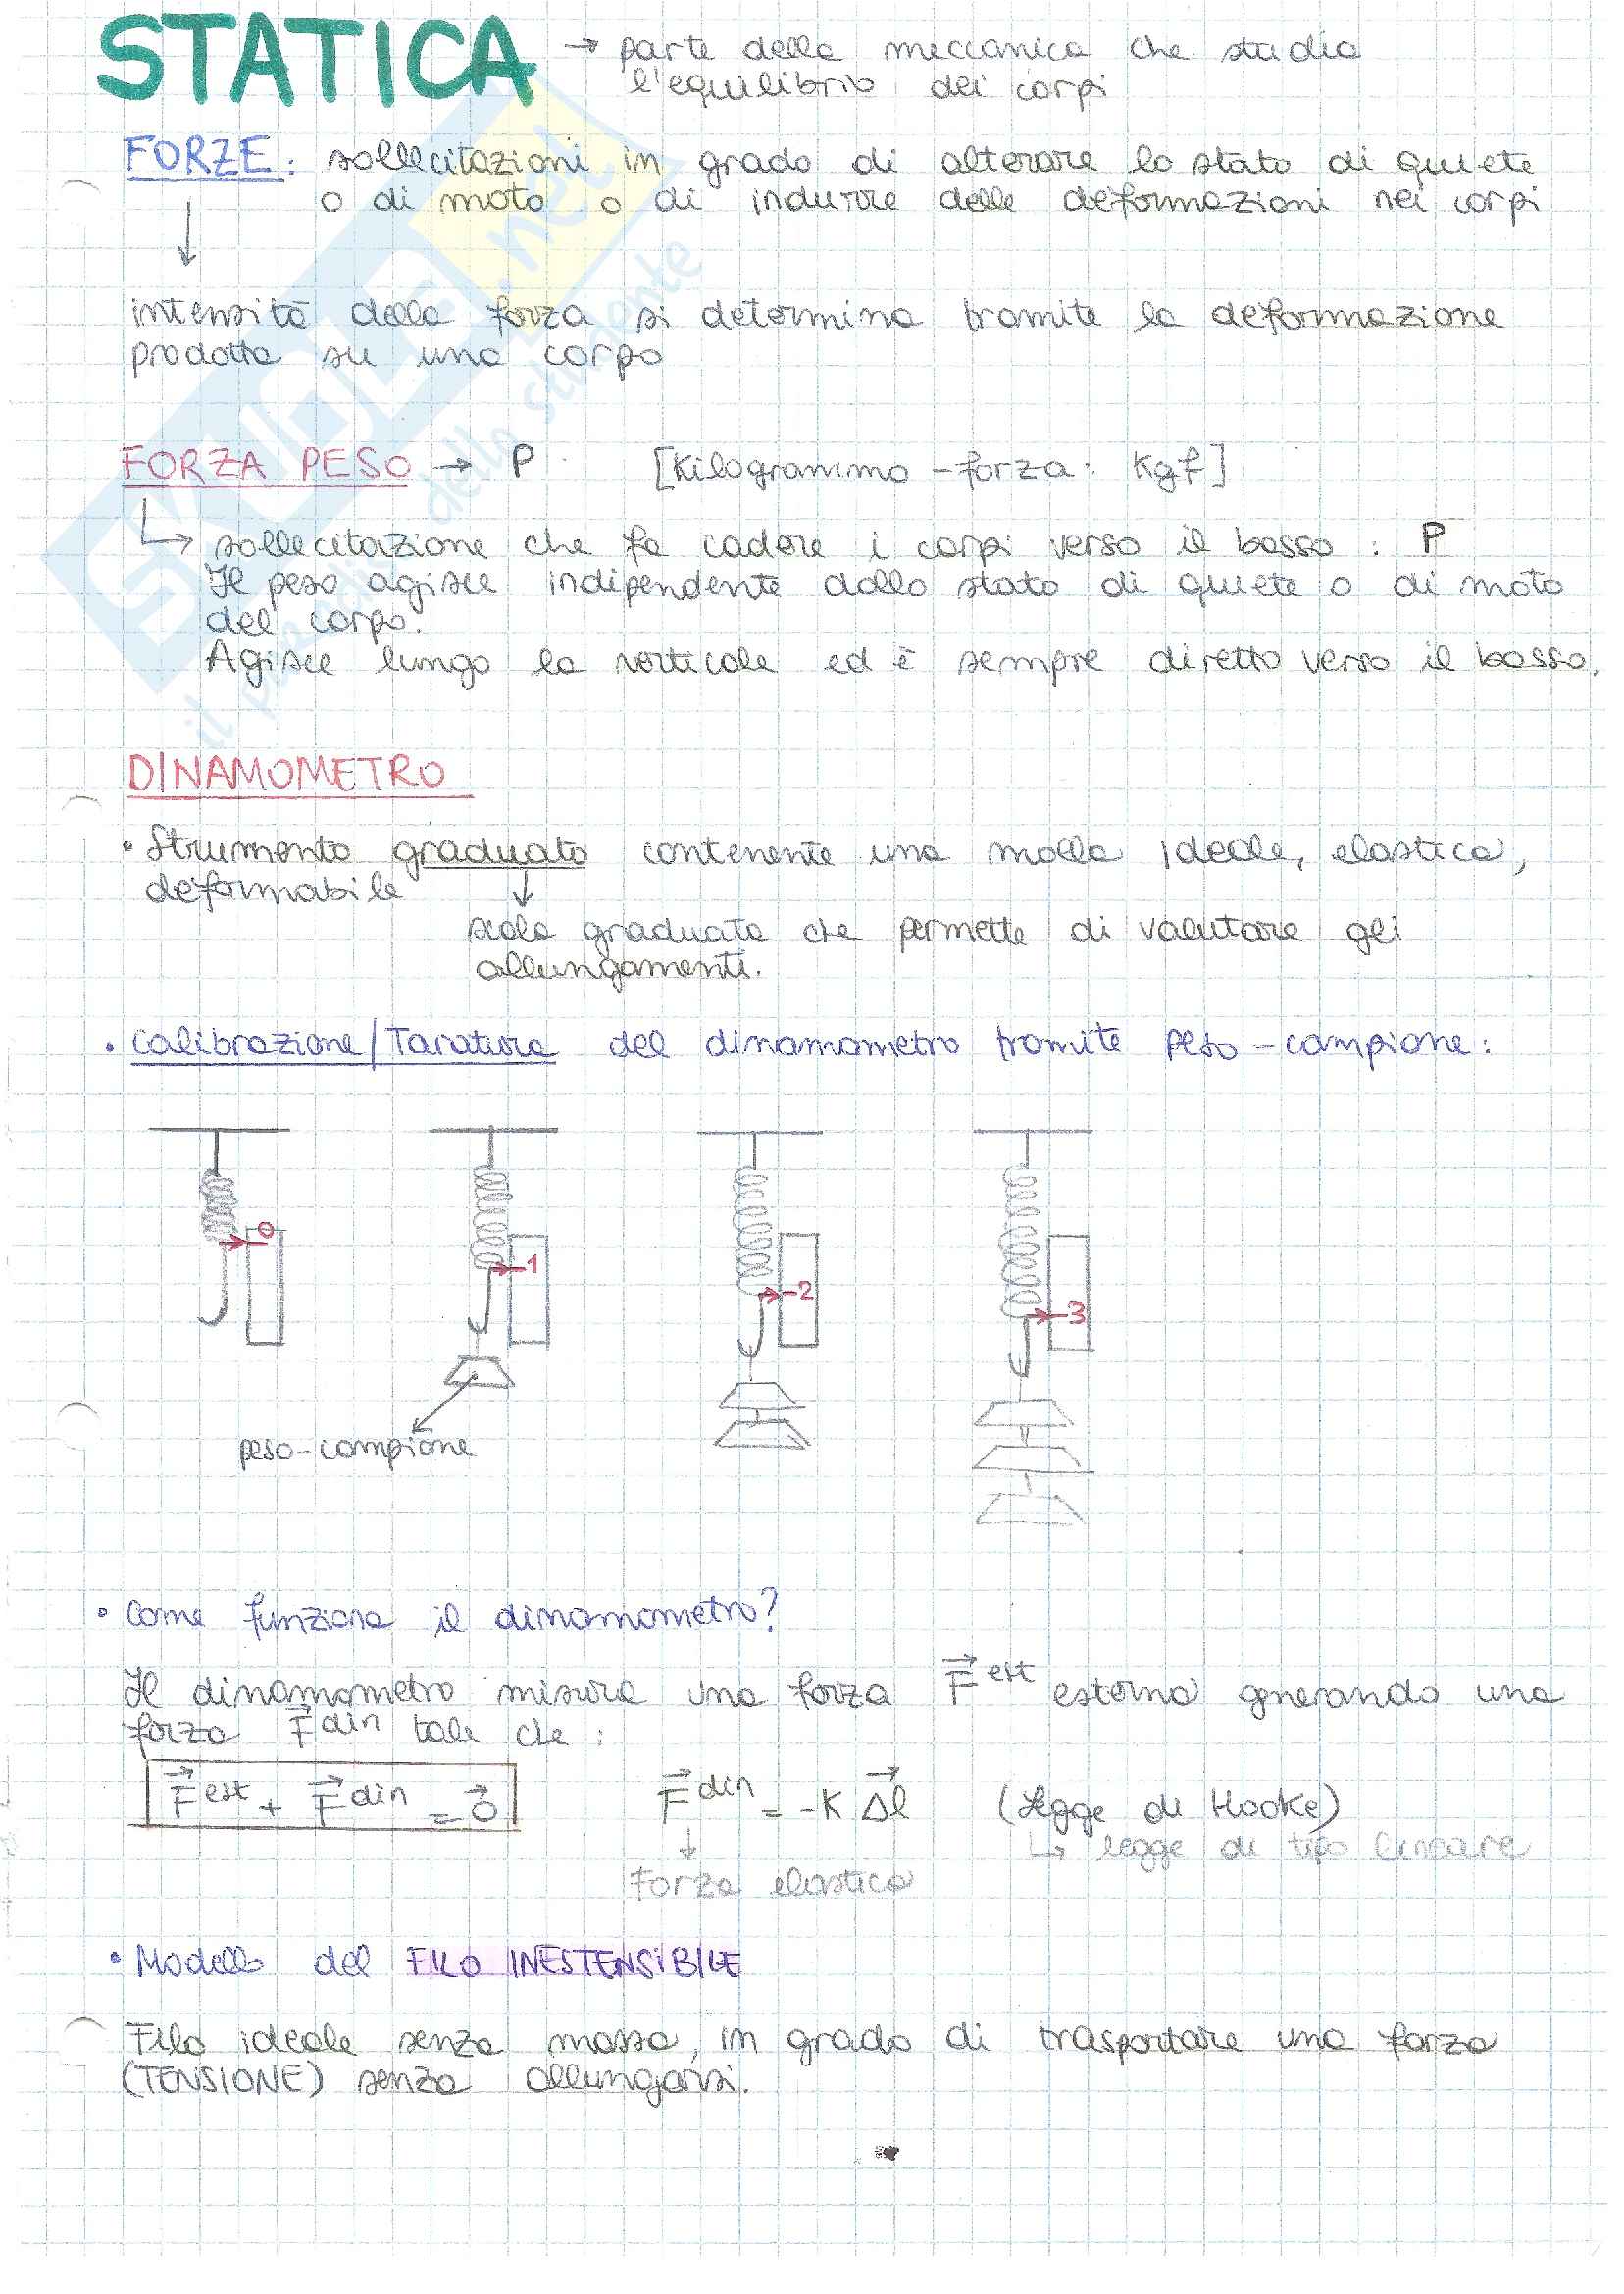 STATICA → parte della meccanica che studia
l'equilibrio dei corpi
FORZE: sollecitazioni in grado di alterare lo stato di quiete
o di moto o di indurre delle deformazioni nei corpi
intensità della forza si determina tramite la deformazione
prodotta su una corpo
FORZA PESO → P [Kilogrammo-forza: Kgf]
sollecitazione che fa cadere i corpi verso il basso: P
Il peso agisce indipendente dallo stato di quiete o di moto
del corpo.
Agisce lungo la verticale ed è sempre diretto verso il basso.
DINAMOMETRO
• Strumento graduato contenente una molla ideale, elastica,
deformabile
scala graduata che permette di valutare gli
allungamenti.
• Calibrazione/Taratura del dinamometro tramite peso-campione:
0
1
2
3
peso-campione
• Come funziona il dinamometro?
Il dinamometro misura una forza F⃗ est esterna generando una
forza F⃗ din tale che:
F⃗ est + F⃗ din = 0⃗ F⃗ din = -K Δl⃗ (Legge di Hooke)
↳ legge di tipo lineare
Forza elastica
• Modello del FILO INESTENSIBILE
Filo ideale senza massa, in grado di trasportare una forza
(TENSIONE) senza allungarsi.
SKUOLA.net
il paradiso dello studente